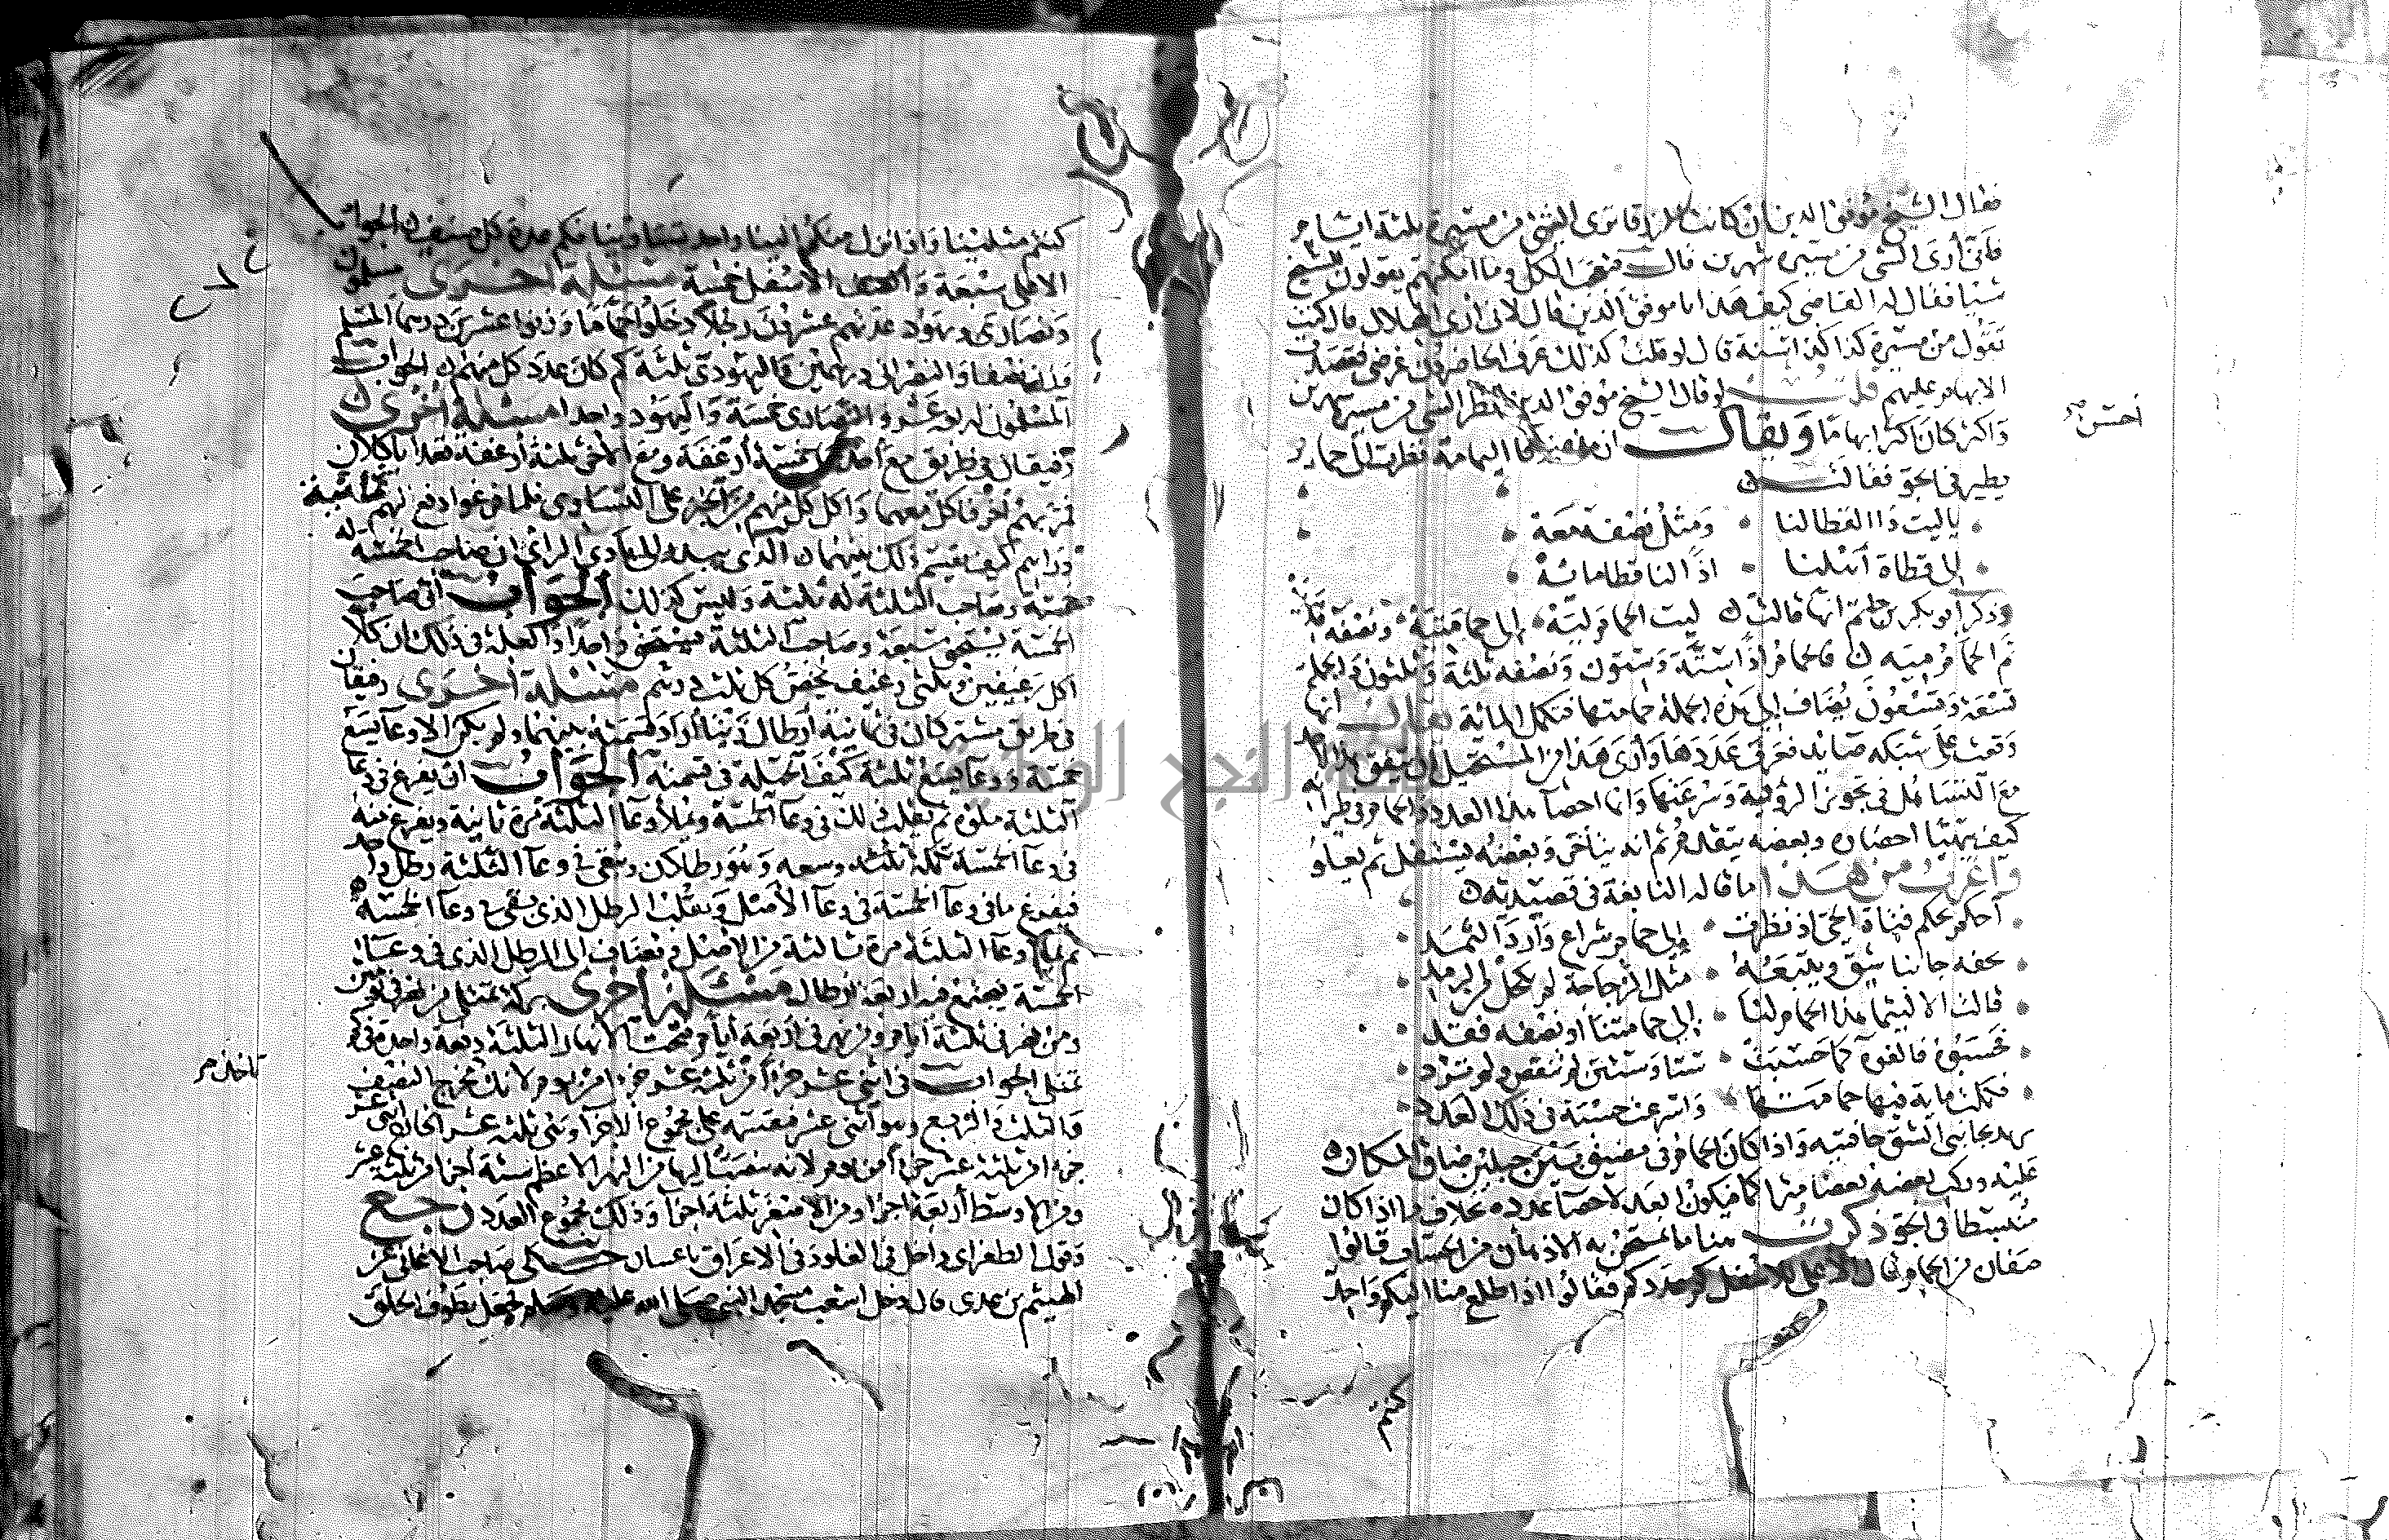 فقال الشيخ موفق الدين ان كانت الزرقا ترى الشي من مسيرة ثلثة ايام
فانى ارى الشى من مسيرة شهرين قال فتعجب الكل وما امكنهم يقولون للشيخ
شيا فقال له القاضى كيف هذا يا موفق الدين قال لانى ارى الهلال قال كنت
تقول من مسيرة كذا كذا سنة قال لو قلت كذلك عرف الحاضرون غرضى فقصدت
الابهام عليهم قلت لو قال الشيخ موفق الدين انظر الشى من مسيرة شهرين
واكثر كان اكثر ابهاما ويقال ان زرقا اليمامة نظرت الى حمام
يطير فى الجو فقالت
ياليت ذا القطا لنا ومثل نصفه معه
الى قطاة اهلنا اذا لنا قطا مائه
وذكر ابو بكر بن انها قالت ليت الحمام ليه الى حمامتيه ونصفه قديه
تم الحمام ميه فالحمام اذا ستة وستون ونصفه ثلثة وثلثون والجملة
تسعة وتسعون يضاف الى هذه الجملة حمامتها فتكمل الماية ويقال انها
وقعت على شبكه صايد فعرف عددها وارى هذا من المستحيل ان يتفق هذا
مع التساهل فى تجويز الرؤية وسرعتها وانما احصا هذا العدد والحمام فى طيرانه
كيف يتهيا احصاه وبعضه يتقدم ثم انه يتاخر وبعضه يستفل ثم يعلو
واغرب من هذا ما قاله النابغة فى قصيدته
احكم بحكم فتاة الحى اذ نظرت الى حمام شراع وارد الثمد
يحفه جانبا نيق ويتبعه مثل الزجاجة لم تكحل من الرمد
قالت الا ليتما هذا الحمام لنا الى حمامتنا او نصفه فقد
فحسبوه فالفوه كما حسبت ستا وستين لم تنقص ولم تزد
فكملت ماية فيها حمامتها واسرعت حسبة فى ذلك العدد
يريد بجانبى النيق حافتيه واذا كان الحمام فى مضيق بين جبلين ضاق المكان
عليه وركب بعضه بعضا متراكما فيكون ابعد لاحصا عدده بخلاف ما اذا كان
منبسطا فى الجو ذكرت هنا ما تمتحن به الاذهان من الحساب قالوا
صفان من الحمام قال الاعلى للاسفل كم عددكم فقالوا اذا طلع منا اليكم واحد
كنتم
احسن صح
كنتم مثلينا واذا نزل منكم الينا واحد تساوينا فكم عدة كل صنف الجواب
الاعلى سبعة والاسفل خمسة مسئلة اخرى مسلمون
ونصارى ويهود عدتهم عشرون رجلا دخلوا حماما وزنوا عشرين درهما المسلم
نصفا والنصرانى درهمين واليهودى ثلثة كم كان عدد كل منهم الجواب
المسلمون اربعة عشر والنصارى خمسة واليهود واحدا مسئلة اخرى
رفيقان فى طريق مع احدهما خمسة ارغفة ومع الاخر ثلثة ارغفة فقعدا ياكلان
فمر بهم اخر فاكل معهما واكل كل منهم من الخبز على التساوى فلما فرغوا دفع لهم ثمانية
دراهم كيف يقسم ذلك بينهما الذى يبدو لبادى الراى ان صاحب الخمسة له
خمسة وصاحب الثلثة له ثلثة وليس كذلك الجواب ان صاحب
الخمسة يستحق سبعة وصاحب الثلثة يستحق واحدا والعلة فى ذلك ان كلا
اكل رغيفين وثلثى رغيف يخص كل ثلث درهم مسئلة اخرى رفيقان
فى طريق مشتركان فى ثمانية ارطال زيتا ارادا قسمته بينهما ولم يكن الا وعا يسع
خمسة ووعا يسع ثلثة كيف الحيلة فى قسمته الجواب ان يفرغ فى وعا
الثلثة ملؤه ثم يقلب ذلك فى وعا الخمسة ويملا وعا الثلثة مرة ثانية ويفرغ منه
فى وعا الخمسة تكملة وسعه وهو رطلان ويبقى فى وعا الثلثة رطل واحد
فيفرغ ما فى وعا الخمسة فى وعا الاصل ويقلب الرطل الذى بقى فى وعا الخمسة
ثم يملا وعا الثلثة مرة ثالثة من الاصل ويضاف الى الرطل الذى فى وعا
الخمسة يصنع فيه اربعة ارطال مسئلة اخرى بركة تمتلى من نهر فى يومين
ومن نهر فى ثلثة ايام ومن نهر فى اربعة ايام فتحت الانهار الثلثة دفعة واحدة فى كم
تمتلى الجواب فى اثنى عشر جزءا من ثلثة عشر جزءا من يوم لانك تخرج النصف
والثلث والربع وهو اثنى عشر فقسمته على مجموع الاجزا وهى ثلثة عشر اثنى عشر
جزءا من ثلثة عشر جزءا من يوم لانه ينصب اليها من النهر الاعظم ستة اجزا من ثلثة عشر
ومن الاوسط اربعة اجزا ومن الاصغر ثلثة اجزا وذلك مجموع العدد رجع
وقول الطغراى داخل فى الغلو وفى الاغراق باعتبار حكى صاحب الاغانى عن
الهيثم بن عدى قال دخل اشعب مسجد النبى صلى الله عليه وسلم فجعل يطوف الحلق